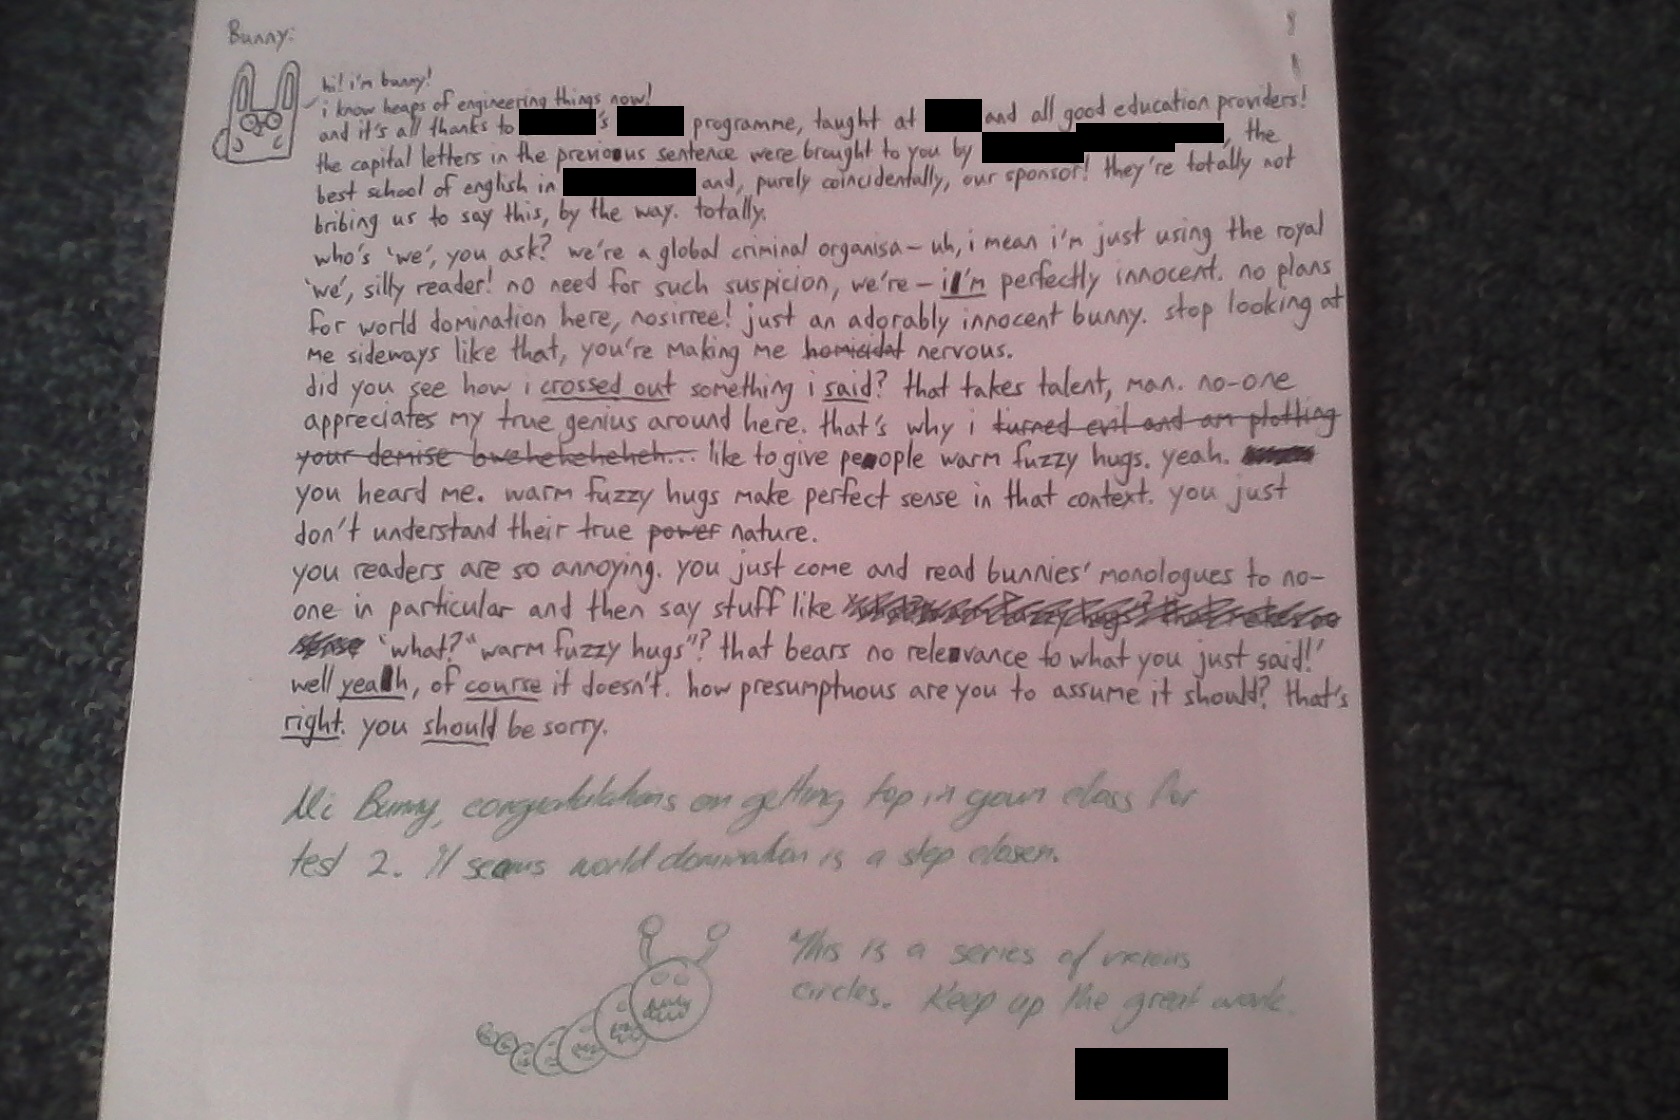 Bunny:
hi! i'm bunny!
i know heaps of engineering things now!
and it's all thanks to 's programme, taught at and all good education providers!
the capital letters in the previous sentence were brought to you by , the
best school of english in and, purely coincidentally, our sponsor! they're totally not
bribing us to say this, by the way. totally.
who's 'we', you ask? we're a global criminal organisa- uh, i mean i'm just using the royal
'we', silly reader! no need for such suspicion, we're - i'm perfectly innocent. no plans
for world domination here, nosirree! just an adorably innocent bunny. stop looking at
me sideways like that, you're making me homicidal nervous.
did you see how i crossed out something i said? that takes talent, man. no-one
appreciates my true genius around here. that's why i turned evil and am plotting
your demise bweheheheheh... like to give people warm fuzzy hugs. yeah.
you heard me. warm fuzzy hugs make perfect sense in that context. you just
don't understand their true power nature.
you readers are so annoying. you just come and read bunnies' monologues to no-
one in particular and then say stuff like
'what? "warm fuzzy hugs"? that bears no relevance to what you just said!'
well yeah, of course it doesn't. how presumptuous are you to assume it should? that's
right. you should be sorry.
Hi Bunny, congratulations on getting top in your class for
test 2. It seems world domination is a step closer.
This is a series of vicious
circles. Keep up the great work.